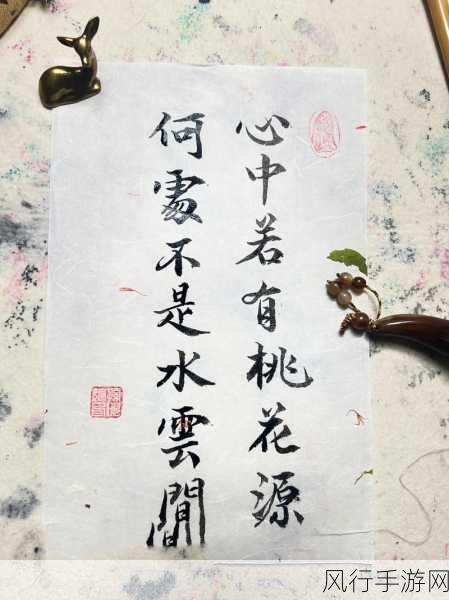 心中若有桃花源
何處不是水雲間
风行手游网